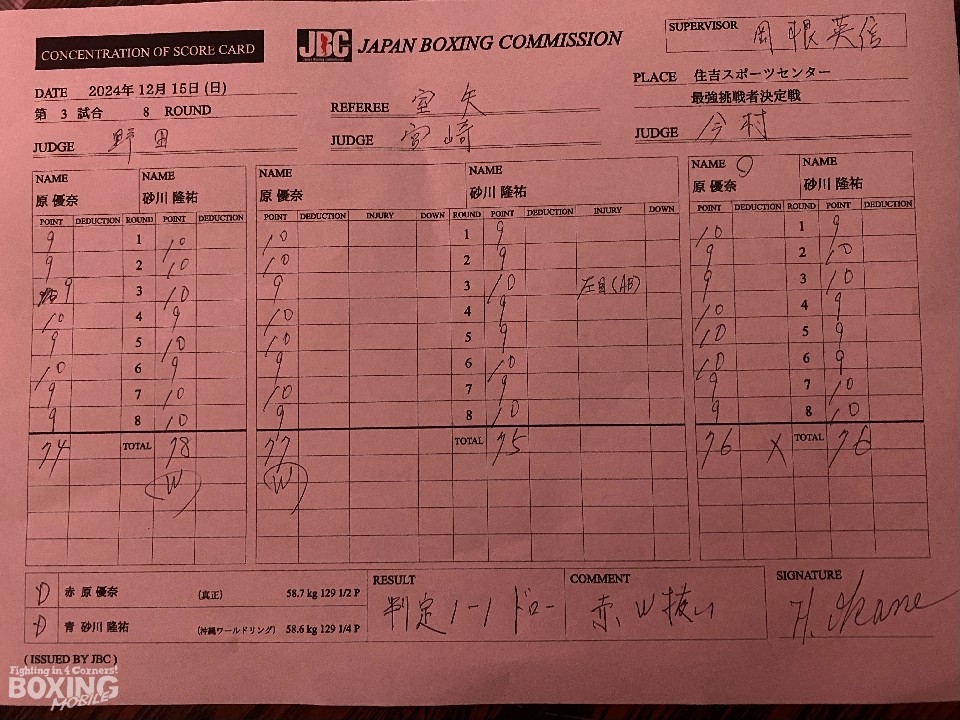 CONCENTRATION OF SCORE CARD
JBC JAPAN BOXING COMMISSION
SUPERVISOR 岡根英信
DATE 2024年 12月 15日 (日)
PLACE 住吉スポーツセンター
第 3 試合 8 ROUND
REFEREE 宮矢
最強挑戦者決定戦
JUDGE 野田
JUDGE 宮崎
JUDGE 今村
NAME NAME NAME NAME NAME NAME
原 優奈 砂川 隆祐 原 優奈 砂川 隆祐 原 優奈 砂川 隆祐
POINT DEDUCTION ROUND POINT DEDUCTION POINT DEDUCTION INJURY DOWN ROUND POINT DEDUCTION INJURY DOWN POINT DEDUCTION ROUND POINT DEDUCTION
9 1 10 10 1 9 10 1 9
9 2 10 10 2 9 9 2 10
9 3 10 9 3 10 左目(AB) 9 3 10
10 4 9 10 4 9 10 4 9
9 5 10 10 5 9 10 5 9
10 6 9 9 6 10 10 6 9
9 7 10 10 7 9 9 7 10
9 8 10 9 8 10 9 8 10
74 TOTAL 78 77 TOTAL 75 76 X TOTAL 76
W W
D 赤 原 優奈 (真正) 58.7 kg 129 1/2 P
D 青 砂川 隆祐 (沖縄ワールドリング) 58.6 kg 129 1/4 P
RESULT
判定 1-1 ドロー
COMMENT
赤、W抜い
SIGNATURE
H. Okane
( ISSUED BY JBC )
Fighting in 4 Corners!
BOXING
MOBILE